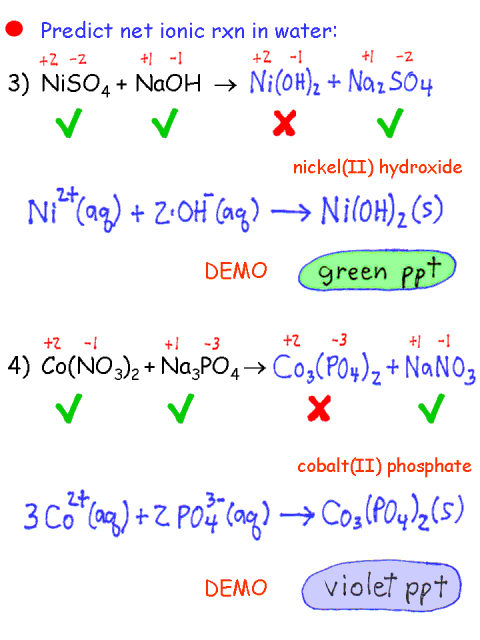 Predict net ionic rxn in water:
+2 -2 +1 -1 +2 -1 +1 -2
3) NiSO₄ + NaOH → Ni(OH)₂ + Na₂SO₄
✓ ✓ ✗ ✓
nickel(II) hydroxide
Ni²⁺(aq) + 2·OH⁻(aq) → Ni(OH)₂(s)
DEMO green ppt
+2 -1 +1 -3 +2 -3 +1 -1
4) Co(NO₃)₂ + Na₃PO₄ → Co₃(PO₄)₂ + NaNO₃
✓ ✓ ✗ ✓
cobalt(II) phosphate
3Co²⁺(aq) + 2PO₄³⁻(aq) → Co₃(PO₄)₂(s)
DEMO violet ppt